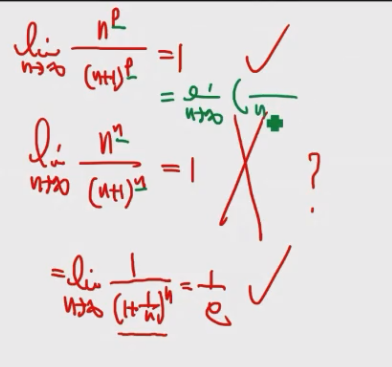 lim n→∞ n^p / (n+1)^p = 1 ✓
= lim n→∞ ( / n
lim n→∞ n^n / (n+1)^n = 1 ✗ ?
= lim n→∞ 1 / (1+1/n)^n = 1/e ✓